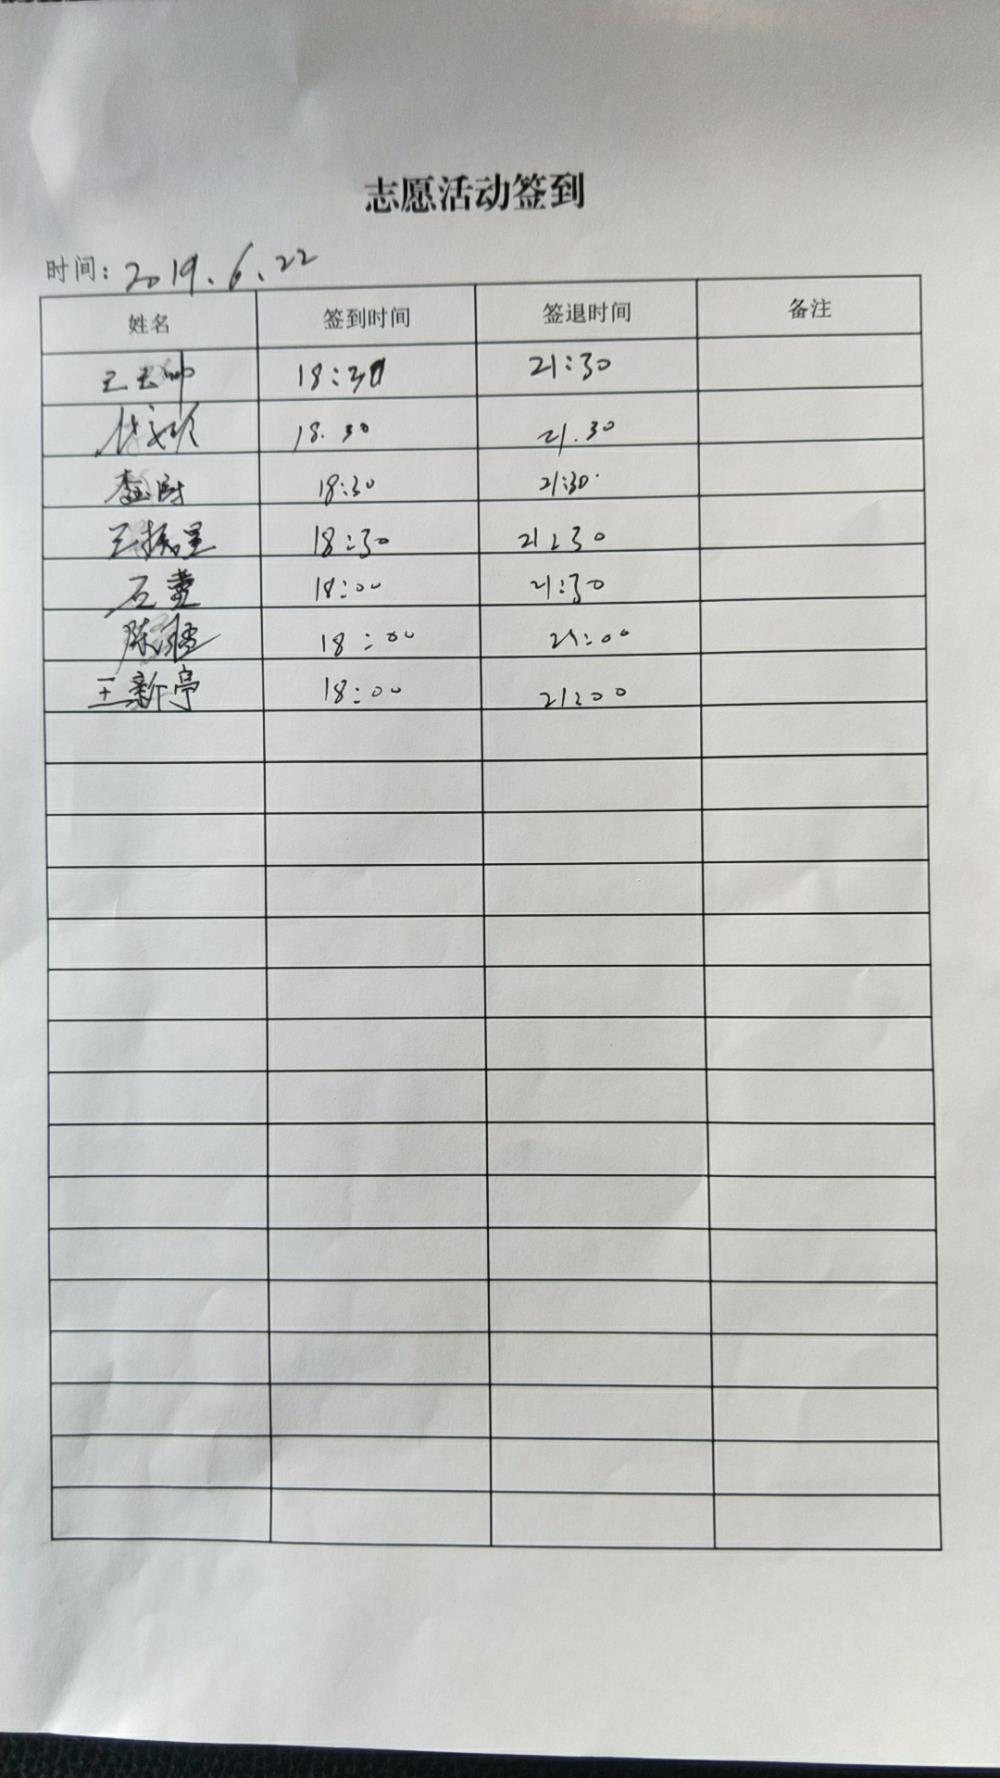 志愿活动签到
时间: 2019.6.22
姓名 签到时间 签退时间 备注
18:30 21:30
18.30 21.30
18:30 21:30
王振星 18:30 21:30
石董 18:00 21:30
陈 18:00 21:00
王新亭 18:00 21:00